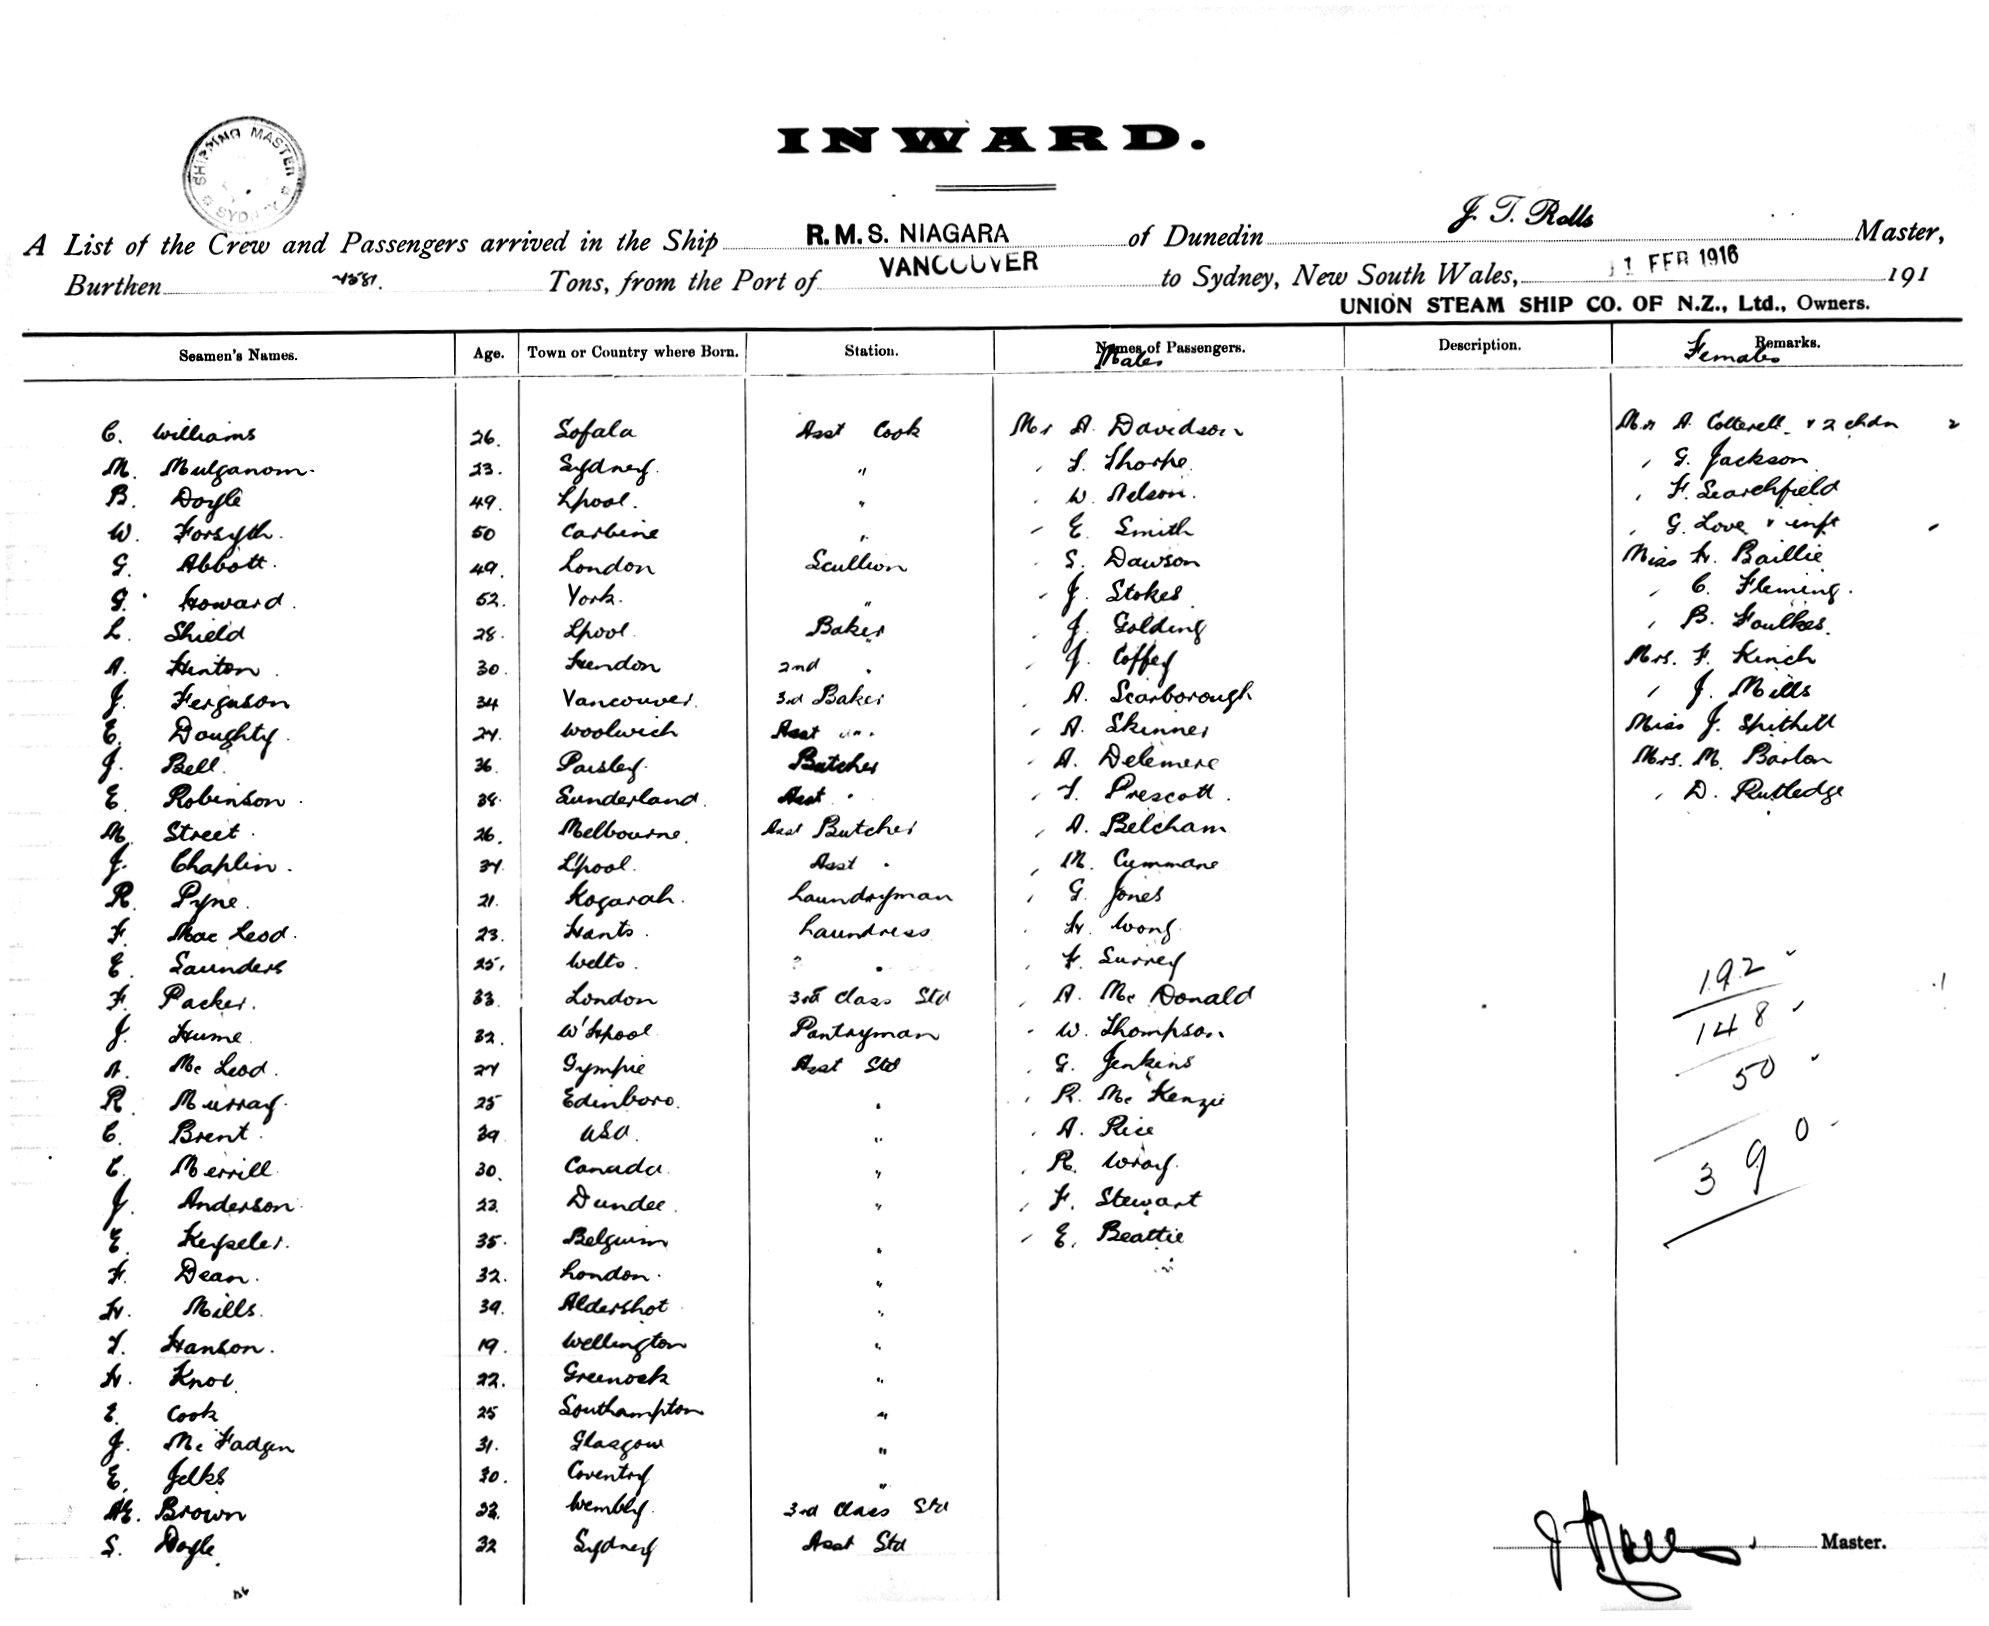 INWARD.
SHIPPING MASTER
SYDNEY
A List of the Crew and Passengers arrived in the Ship R.M.S. NIAGARA of Dunedin J. T. Rolls Master,
Burthen Tons, from the Port of VANCOUVER to Sydney, New South Wales, 1 FEB 1916 191
UNION STEAM SHIP CO. OF N.Z., Ltd., Owners.
Seamen's Names. Age. Town or Country where Born. Station. Names of Passengers. Description. Remarks.
Males Females
C. Williams 26. Sofala Asst Cook Mr A. Davidson Mrs A. Cotterell & 2 chdn 2
M. Mulganom. 23. Sydney. " , T. Thorpe , G. Jackson
B. Doyle 49. Lpool. " , W. Nelson. , F. Searchfield
W. Forsyth. 50 Carbine " , E. Smith , G. Love & inft
G. Abbott. 49. London Scullion , S. Dawson Miss H. Baillie
G. Howard. 52. York. " , J. Stokes , C. Fleming.
L. Shield 28. Lpool. Baker , J. Golding , B. Foulkes.
A. Hinton 30. Hendon 2nd " , J. Coffey Mrs. F. Kinch
J. Ferguson 34 Vancouver. 3rd Baker , A. Scarborough , J. Mills
E. Doughty. 24. Woolwich Asst " , A. Skinner Miss J. Shithell
J. Bell. 36. Paisley. Butcher , A. Delemere Mrs. M. Barlon
E. Robinson. 38. Sunderland. Asst " , T. Prescott. , D. Rutledge
M. Street. 26. Melbourne. Asst Butcher , A. Belcham
J. Chaplin. 34 L'pool. Asst " , M. Cummane
R. Pyne. 21. Kogarah. Laundryman , G. Jones
F. Mac Leod. 23. Hants. Laundress , H. Wong.
E. Saunders 25. Welts. " , F. Surrey 192
F. Packer. 33. London 3rd Class Std , A. Mc Donald
J. Hume. 32. W'Hpool Pantryman , W. Thompson 148
A. Mc Leod. 24 Gympie Asst Std , G. Jenkins 50
R. Murray. 25 Edinboro. " , R. Mc Kenzie
C. Brent. 39 USA. " , A. Rice
C. Merrill. 30. Canada " , R. Wray. 390
J. Anderson 23. Dundee. " , F. Stewart
E. Keyseler. 35. Belguim " , E. Beattie
F. Dean. 32. London. "
H. Mills. 39. Aldershot "
T. Hanson. 19. Wellington "
H. Knoe. 22. Greenock "
E. Cook 25 Southampton "
J. Mc Fadgen 31. Glasgow "
E. Jelks 30. Coventry "
AE. Brown 23. Wembly. 3rd Class Std
S. Doyle. 32 Sydney Asst Std
J T Rolls Master.